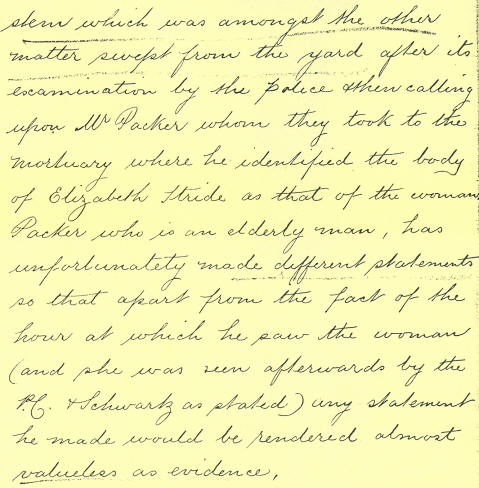 stem which was amongst the other
matter swept from the yard after its
examination by the police & then calling
upon Mr Packer whom they took to the
mortuary where he identified the body
of Elizabeth Stride as that of the woman.
Packer who is an elderly man, has
unfortunately made different statements
so that apart from the fact of the
hour at which he saw the woman
(and she was seen afterwards by the
P.C. & Schwartz as stated) any statement
he made would be rendered almost
valueless as evidence.